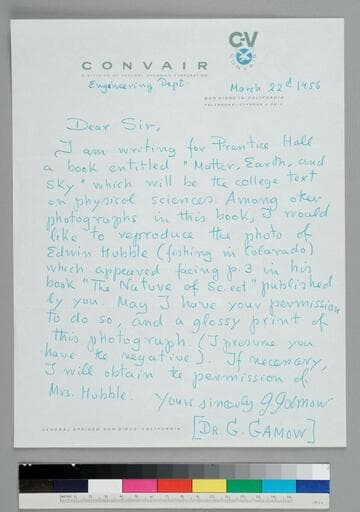 C-V
CONVAIR
CONVAIR
A DIVISION OF GENERAL DYNAMICS CORPORATION
Engineering Dept.
March 22d 1956
SAN DIEGO 12, CALIFORNIA
Dear Sir,
I am writing for Prentice Hall
a book entitled "Matter, Earth, and
Sky" which will be the college text
on physical sciences. Among other
photographs in this book, I would
like to reproduce the photo of
Edwin Hubble (fishing in Colorado)
which appeared facing p.3 in his
book "The Nature of Sc.ect" published
by you. May I have your permission
to do so, and a glossy print of
this photograph. (I presume you
have the negative). If necessary,
I will obtain the permission of
Mrs. Hubble.
Yours sincerely GGamow
[DR. G. GAMOW]
GENERAL OFFICES SAN DIEGO CALIFORNIA